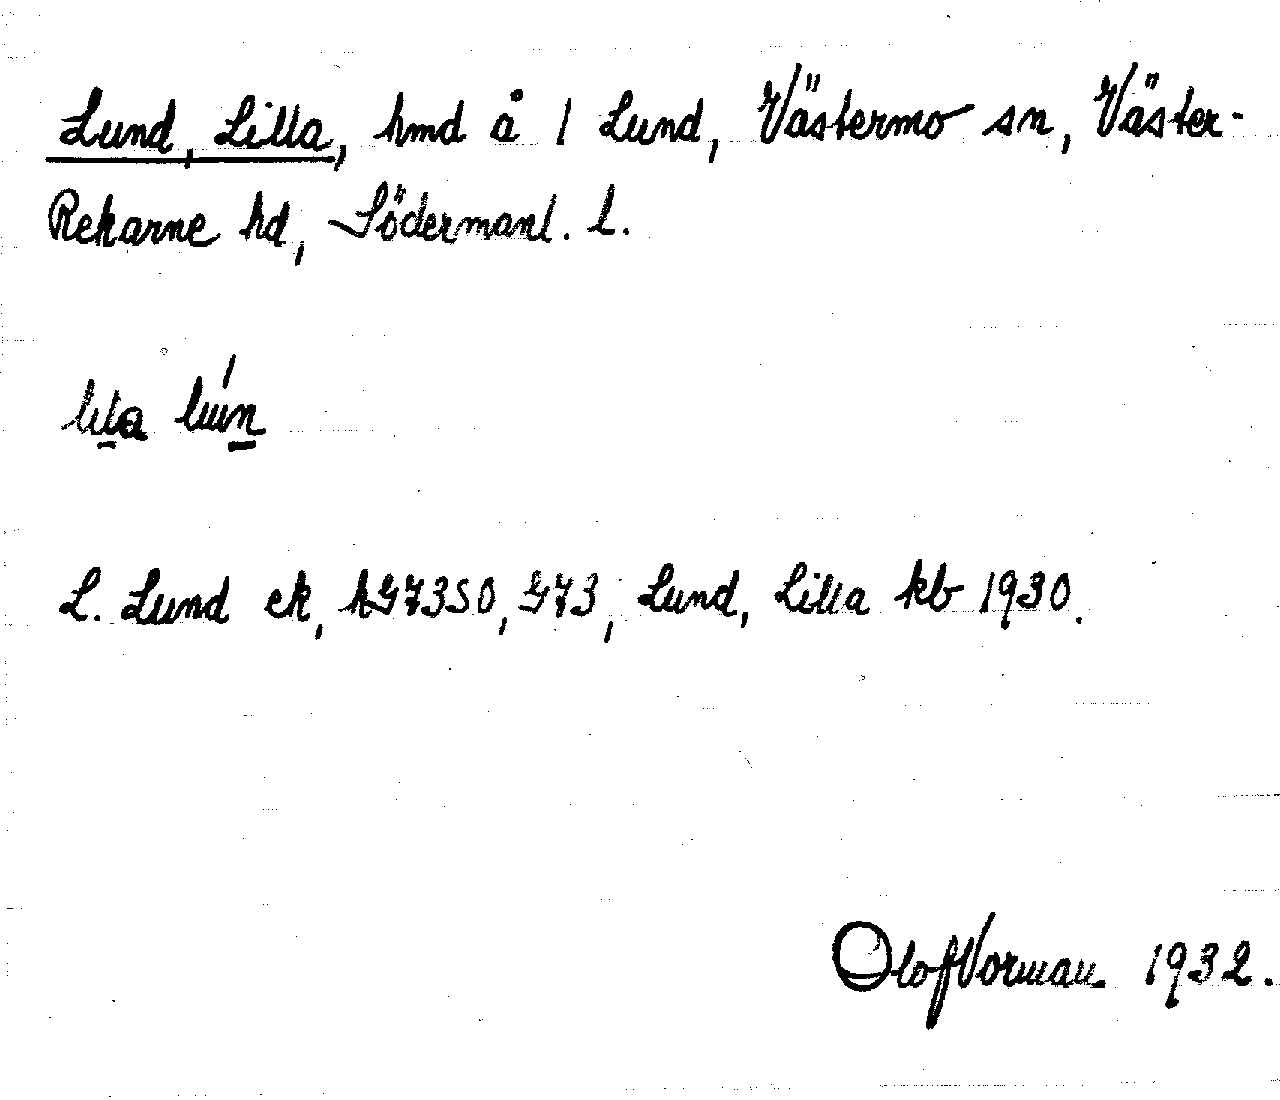 Lund, Lilla, hmd å 1 Lund, Västermo sn, Väster-
Rekarne hd, Södermanl. l.
L. Lund ek, hG7350, G73, Lund, Lilla kb 1930.
Olof Norman 1932.